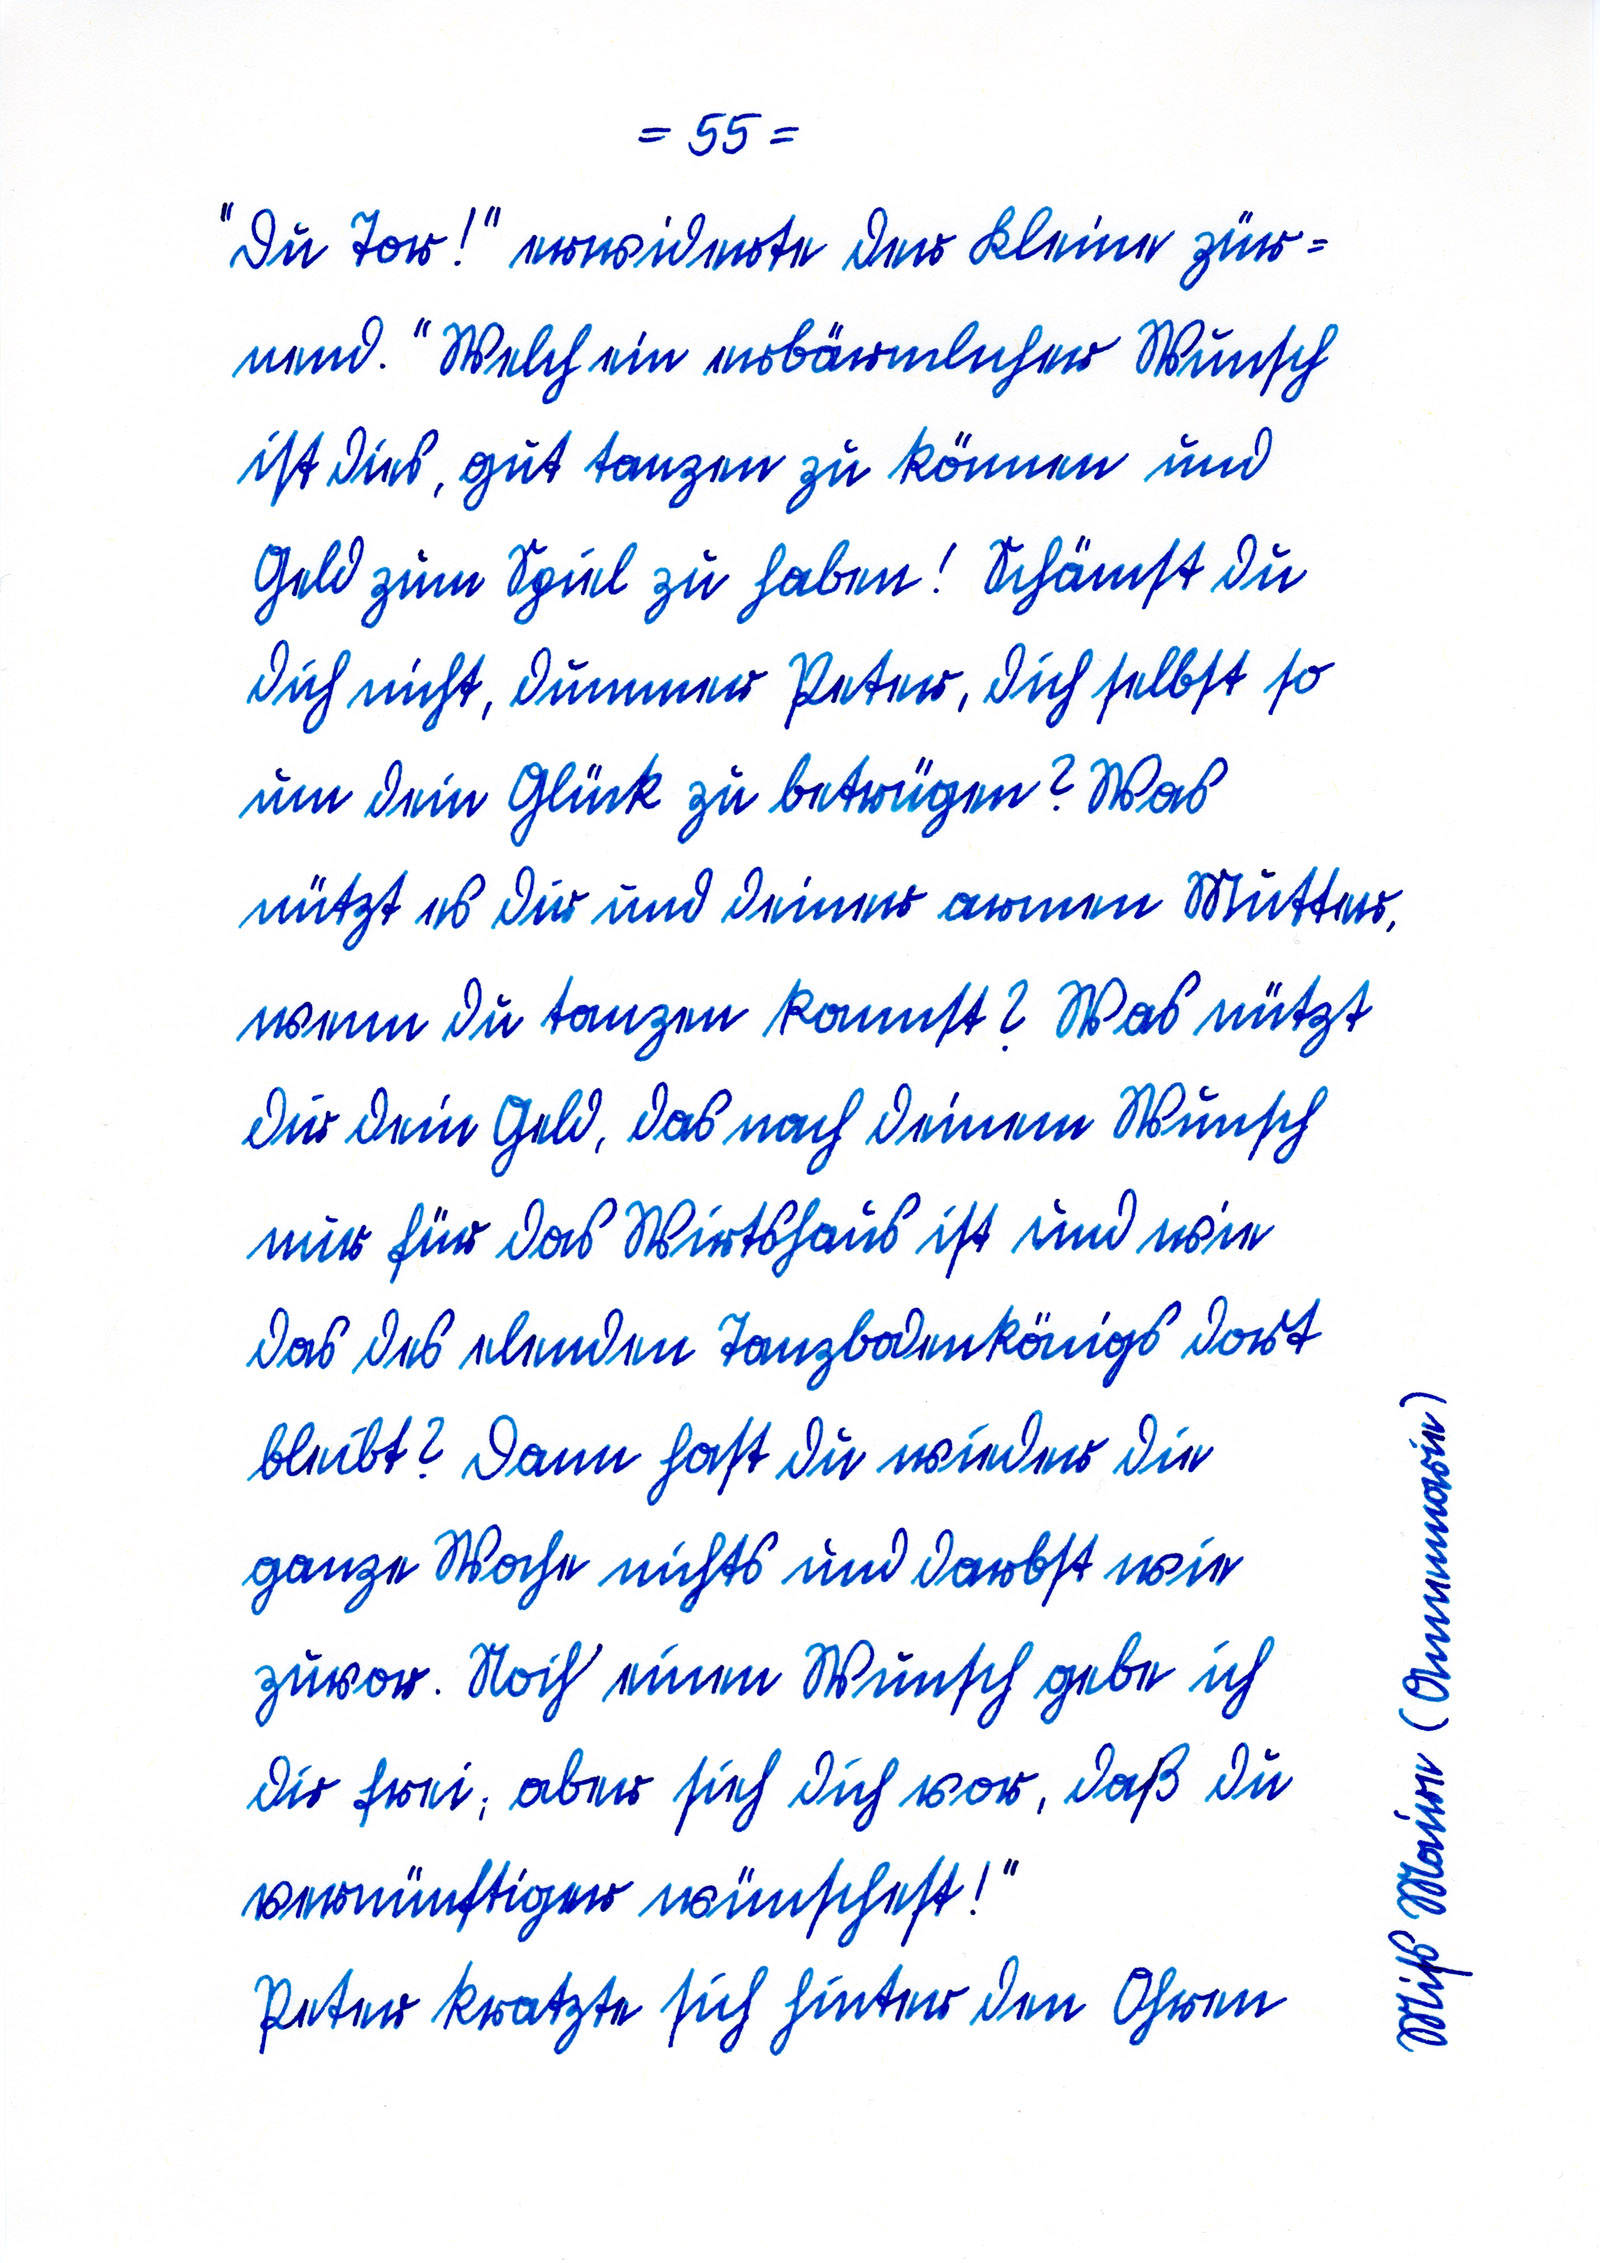 = 55 =
"Du Tor!" erwiderte der Kleine zür=
nend. "Welch ein erbärmlicher Wunsch
ist dies, gut tanzen zu können und
Geld zum Spiel zu haben! Schämst du
dich nicht, dummer Peter, dich selbst so
um dein Glück zu betrügen? Was
nützt es dir und deiner armen Mutter,
wenn du tanzen kannst? Was nützt
dir dein Geld, das nach deinem Wunsch
nur für das Wirtshaus ist und wie
das des elenden Tanzbodenkönigs dort
bleibt? Dann hast du wieder die
ganze Woche nichts und darbst wie
zuvor. Noch einen Wunsch gebe ich
dir frei; aber sieh dich vor, daß du
vernünftiger wünschest!"
Peter kratzte sich hinter den Ohren
(Annemarie)